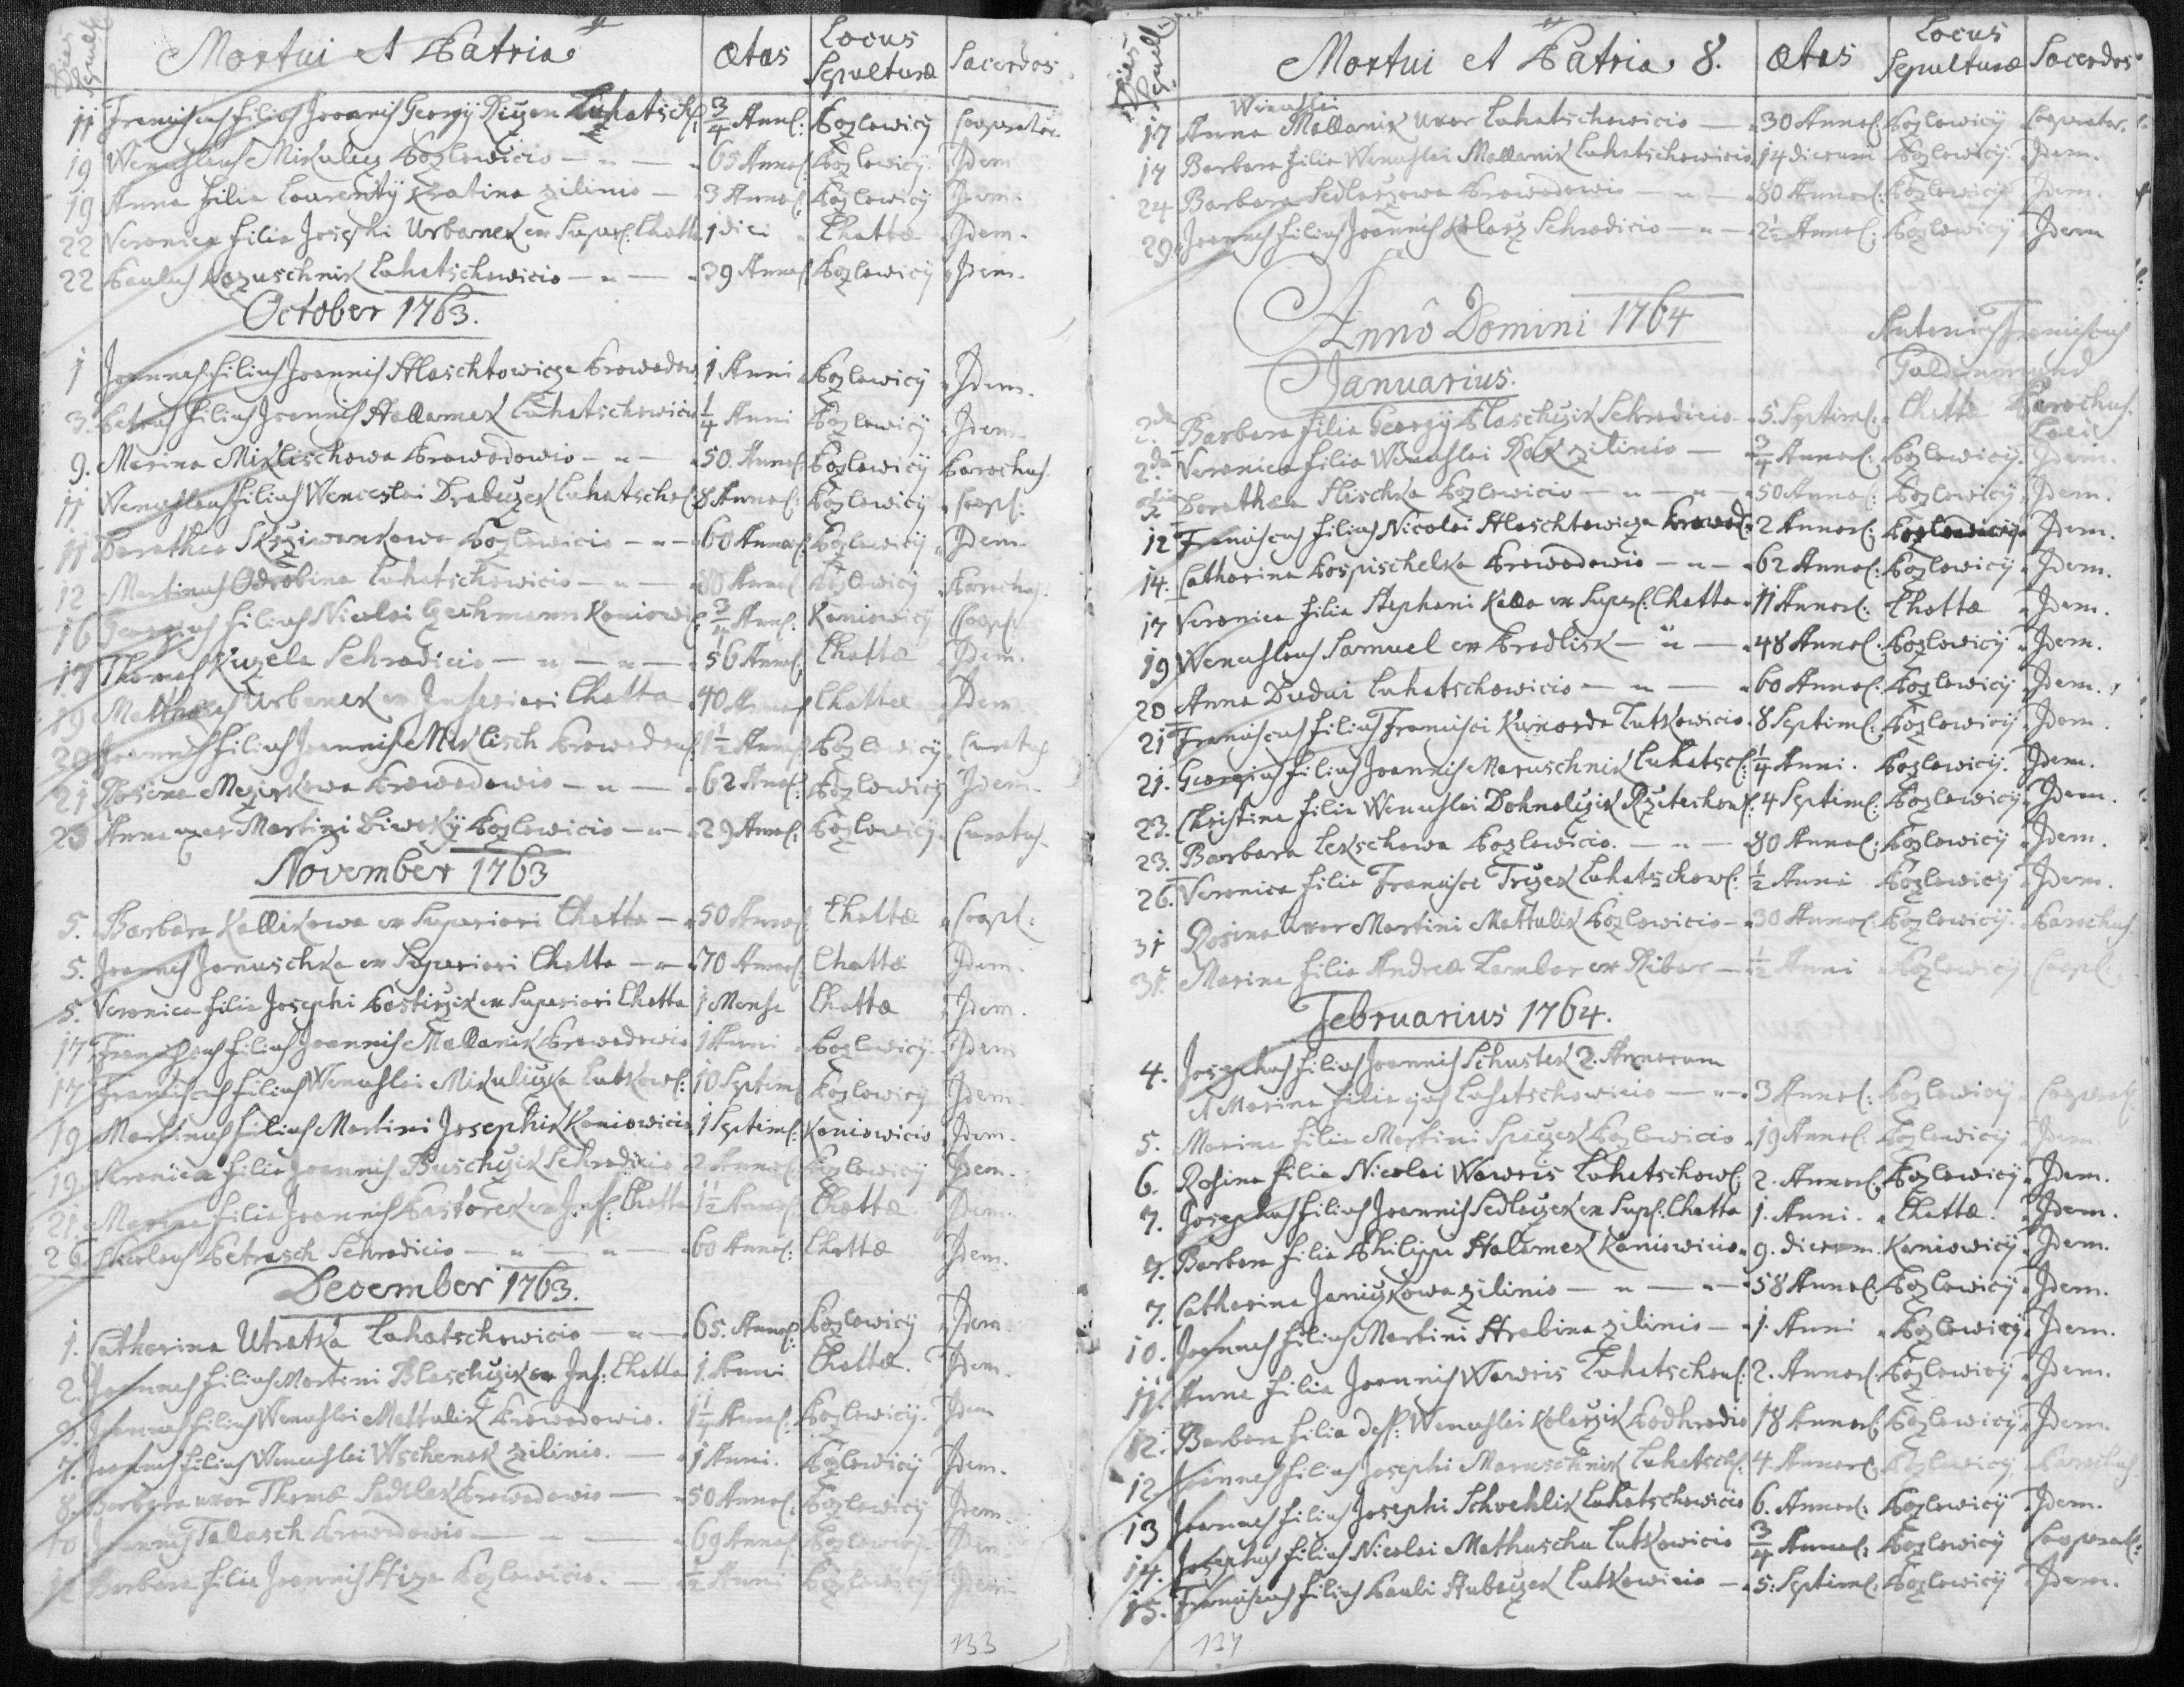 Dies Sepult.
Mortui et Patria
Ætas
Locus Sepulturæ
Sacerdos
11 Franciscus filius Joannis Georgÿ Rizon Luhatsch: 3/4 Ann: Pozlowicÿ Cooperator
19 Wenceslaus Mikulez Pozlowicio 65 Annor: Pozlowicÿ Idem
19 Anna filia Laurentÿ Kratina zilinio 3 Annor: Pozlowicÿ Idem.
22 Veronica filia Josephi Urbanek ex Super: Lhotta 1 diei Lhottæ Idem.
22 Paulus Kozuschnik Luhatschowicio 39 Annor: Pozlowicÿ Idem.
October 1763.
1 Joannes filius Joannis Hlaschtowicza Prowodow 1 Anni Pozlowicÿ Idem.
3. Petrus filius Joannis Hallamek Luhatschowicio 1/4 Anni Pozlowicÿ Idem.
9. Marina Miklischowa Prowodowio 50 Annor: Pozlowicÿ Parochus.
11 Wenceslaus filius Wenceslai Drabuzek Luhatschow: 8 Annor: Pozlowicÿ Coop:
11 Dorothea Skrziwankowa Pozlowicio 60 Annor: Pozlowicÿ Idem
12 Martinus Odrobina Luhatschowicio 80 Annor: Pozlowicÿ Parochus.
16 Georgius filius Nicolai Gechmann Kaniowi: 3/4 Ann: Kaniowicÿ Coop:
17 Thomas Kuzela Sehradicio 56 Annor: Lhottæ Idem.
19 Matthæus Urbanek ex Inferiori Lhotta 40 Annor: Lhottæ Idem
20 Joannes filius Joannis Miklisch Prowodow: 1 1/2 Annor: Pozlowicÿ Curatus
21 Rosina Mezirkowa Prowodowio 62 Annor: Pozlowicÿ Idem.
23 Anna uxor Martini Diwokÿ Pozlowicio 29 Annor: Pozlowicÿ Curatus.
November 1763
5. Barbara Kallikowa ex Superiori Lhotta 50 Annor: Lhottæ Coop:
5. Joannes Januschka ex Superiori Lhotta 70 Annor: Lhottæ Idem.
5. Veronica filia Josephi Postirzik ex Superiori Lhotta 1 Mense Lhottæ Idem.
17. Franciscus filius Joannis Mallanik Prowodowio 1 Anni Pozlowicÿ Idem
17 Franciscus filius Wenceslai Mikulizka Lutkow: 10 Septim: Pozlowicÿ Idem.
19 Martinus filius Martini Josephik Kaniowicio 1 Septim: Kaniowicio Idem.
19 Veronica filia Joannis Buschzik Sehradicio 2 Annor: Pozlowicÿ Idem.
21. Marina filia Joannis Pastorek ex Inf: Lhotta 1 1/2 Annor: Lhottæ. Idem.
26 Nicolaus Petrasch Sehradicio 60 Annor: Lhottæ Idem.
December 1763.
1. Catharina Utratka Luhatschowicio 65. Annor: Pozlowicÿ Idem
2. Joannes filius Martini Blaschzik ex Inf: Lhotta 1. Anni Lhottæ. Idem.
3. Joannes filius Wenceslai Mattulik Prowodowio. 1 1/4 Annor: Pozlowicÿ. Idem
7. Joannes filius Wenceslai Wschenek zilinio. 1 Anni. Pozlowicÿ Idem.
8. Barbara uxor Thomæ Sadilek Prowodowio 50 Annor: Pozlowicÿ Idem.
10 Joannes Talasch Prowodowio 69 Annor: Pozlowicÿ Idem
12 Barbara filia Joannis Hiza Pozlowicio. 1/2 Anni Pozlowicÿ Idem
133
Dies Sepult.
Mortui et Patria 8.
Ætas
Locus Sepulturæ
Sacerdos
Wenceslai
17 Anna Mallanik uxor Luhatschowicio 30 Annor: Pozlowicÿ Cooperator.
17 Barbara filia Wenceslai Mallanik Luhatschowicio 14 dierum Pozlowicÿ Idem.
24 Barbara Sedlarzowa Prowodowio 80 Annor: Pozlowicÿ Idem.
29. Joannes filius Joannis Kolarz Sehradicio 2 1/2 Annor: Pozlowicÿ Idem
Annô Domini 1764
Januarius.
Antonius Franciscus
Parochus Loci
2da Barbara filia Georgÿ Blaschzik Sehradicio 5. Septim: Lhottæ
2da Veronica filia Wenceslai Rak zilinio 3/4 Annor: Pozlowicÿ. Idem.
Dorothæa Hischka Pozlowicio 50 Annor: Pozlowicÿ Idem.
12 Franciscus filius Nicolai Hlaschtowicza Prowod: 2 Annor: Pozlowicÿ Idem.
14. Catharina Pospischelka Prowodowio 62 Annor: Pozlowicÿ Idem.
17 Veronica filia Stephani Kalla ex Super: Lhotta 11 Annor: Lhottæ Idem.
19 Wenceslaus Samuel ex Pradlisk 48 Annor: Pozlowicÿ Idem.
20 Anna Dudui Luhatschowicio 60 Annor: Pozlowicÿ Idem.
21 Franciscus filius Francisci Kunorda Lutkowicio 8 Septim: Pozlowicÿ Idem.
21. Georgius filius Joannis Maruschnik Luhatsch: 1/4 Anni. Pozlowicÿ. Idem.
23. Christina filia Wenceslai Dohnalizik Rzetechow: 4 Septim: Pozlowicÿ Idem.
23. Barbara Lekschowa Pozlowicio. 80 Annor: Pozlowicÿ Idem.
26. Veronica filia Francisci Trizek Luhatschow: 1/2 Anni Pozlowicÿ Idem.
31 Rosina uxor Martini Mattulik Pozlowicio 30 Annor: Pozlowicÿ. Parochus
31. Marina filia Andreæ Lambor ex Ribar 1/2 Anni Pozlowicÿ Coop:
Februarius 1764.
4. Josephus filius Joannis Schustek 2. Annorum
et Marina filia ejus Luhatschowicio 3 Annor: Pozlowicÿ Cooperat:
5. Marina filia Martini Spaczek Pozlowicio 19 Annor: Pozlowicÿ Idem.
6. Rosina filia Nicolai Wawris Luhatschow: 2. Annor: Pozlowicÿ Idem.
7. Josephus filius Joannis Sedlazek ex Sup: Lhotta 1. Anni. Lhottæ. Idem.
7. Barbara filia Philippi Halamek Kaniowicio 9. dierum. Kaniowicÿ Idem.
7. Catharina Janizkowa zilinio 58 Annor: Pozlowicÿ Idem.
10. Joannes filius Martini Hrabina zilinio 1. Anni Pozlowicÿ Idem.
11. Anna filia Joannis Wawris Luhatschow: 2. Annor: Pozlowicÿ Idem.
12. Barbara filia def: Wenceslai Kolarzik Podhradio 18 Annor: Pozlowicÿ Idem.
12. Joannes filius Josephi Maruschnik Luhatsch: 4. Annor: Pozlowicÿ Parochus
13 Joannes filius Josephi Schoehlik Luhatschowicio 6. Annor: Pozlowicÿ Idem.
14. Josephus filius Nicolai Mathuscha Lutkowicio 3/4 Annor: Pozlowicÿ Cooperat:
15. Franciscus filius Pauli Hubazek Lutkowicio 5: Septim: Pozlowicÿ Idem.
134